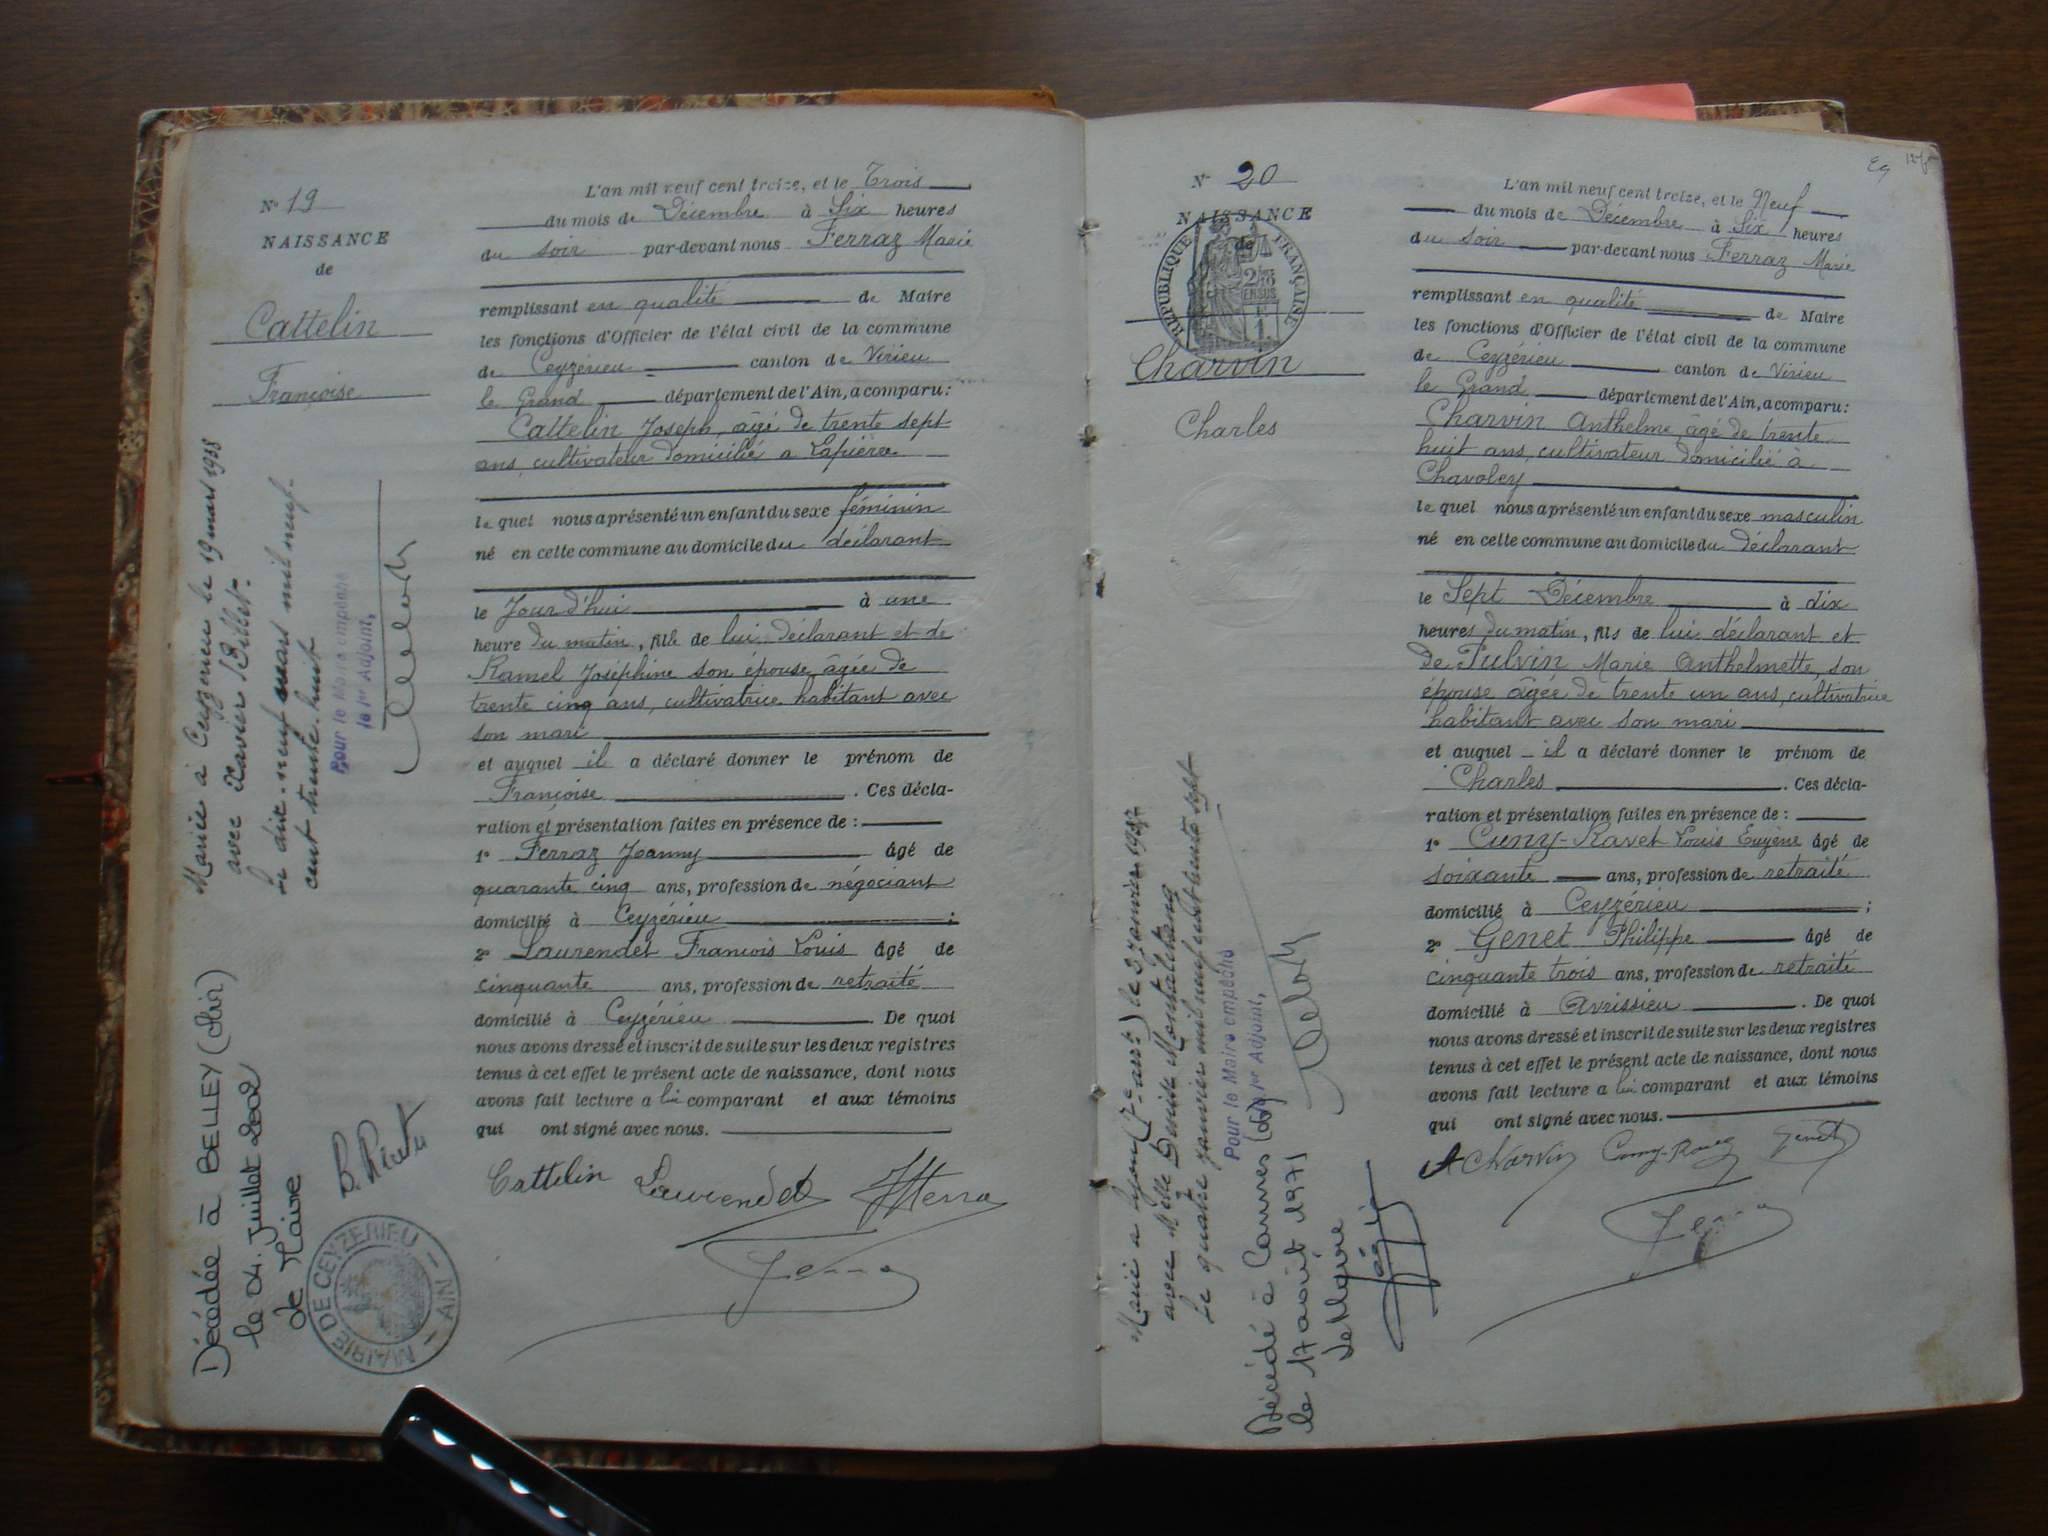 Nº 19
NAISSANCE
de
Cattelin
Françoise
L'an mil neuf cent treize, et le Trois
du mois de Décembre à Six heures
du soir par-devant nous Ferraz Marie
remplissant en qualité de Maire
les fonctions d'Officier de l'état civil de la commune
de Ceyzérieu canton de Virieu
le Grand département de l'Ain, a comparu:
Cattelin Joseph, âgé de trente sept
ans, cultivateur domicilié a Lapierre
le quel nous a présenté un enfant du sexe féminin
né en cette commune au domicile du déclarant
le Jour d'hui à une
heure du matin, fille de lui déclarant et de
Ramel Joséphine son épouse âgée de
trente cinq ans, cultivatrice habitant avec
son mari
et auquel il a déclaré donner le prénom de
Françoise. Ces décla-
ration et présentation faites en présence de:
1º Ferraz Joanny âgé de
quarante cinq ans, profession de négociant
domicilié à Ceyzérieu;
2º Laurendet François Louis âgé de
cinquante ans, profession de retraité
domicilié à Ceyzérieu. De quoi
nous avons dressé et inscrit de suite sur les deux registres
tenus à cet effet le présent acte de naissance, dont nous
avons fait lecture a lui comparant et aux témoins
qui ont signé avec nous.
Cattelin Laurendet
Mariée à Ceyzérieu le 19 mars 1938
avec Xavier Billet.
Le dix-neuf mars mil neuf-
cent trente-huit
Pour le Maire empêché
le 1er Adjoint,
Décédée à BELLEY (Ain)
le 04 juillet 2002
de Maire
MAIRIE DE CEYZERIEU - AIN -
Nº 20
NAISSANCE
de
REPUBLIQUE FRANÇAISE
Charvin
Charles
L'an mil neuf cent treize, et le Neuf
du mois de Décembre à Six heures
du soir par-devant nous Ferraz Marie
remplissant en qualité de Maire
les fonctions d'Officier de l'état civil de la commune
de Ceyzérieu canton de Virieu
le Grand département de l'Ain, a comparu:
Charvin Anthelme âgé de trente
huit ans, cultivateur domicilié à
Chavoley
le quel nous a présenté un enfant du sexe masculin
né en cette commune au domicile du déclarant
le Sept Décembre à dix
heures du matin, fils de lui déclarant et
de Pulvin Marie Anthelmette, son
épouse âgée de trente un ans, cultivatrice
habitant avec son mari
et auquel il a déclaré donner le prénom de
Charles. Ces décla-
ration et présentation faites en présence de:
1º Cuny-Ravet Louis Eugène âgé de
soixante ans, profession de retraité
domicilié à Ceyzérieu;
2º Genet Philippe âgé de
cinquante trois ans, profession de retraité
domicilié à Avrissieu. De quoi
nous avons dressé et inscrit de suite sur les deux registres
tenus à cet effet le présent acte de naissance, dont nous
avons fait lecture a lui comparant et aux témoins
qui ont signé avec nous.
A Charvin Genet
Marié à Lyon (7e arrt) le 3 janvier 1937
avec Melle
Le quatre janvier mil neuf cent trente sept
Pour le Maire empêché
le 1er Adjoint,
Décédé à Cannes
le 17 août 1971
Le Maire